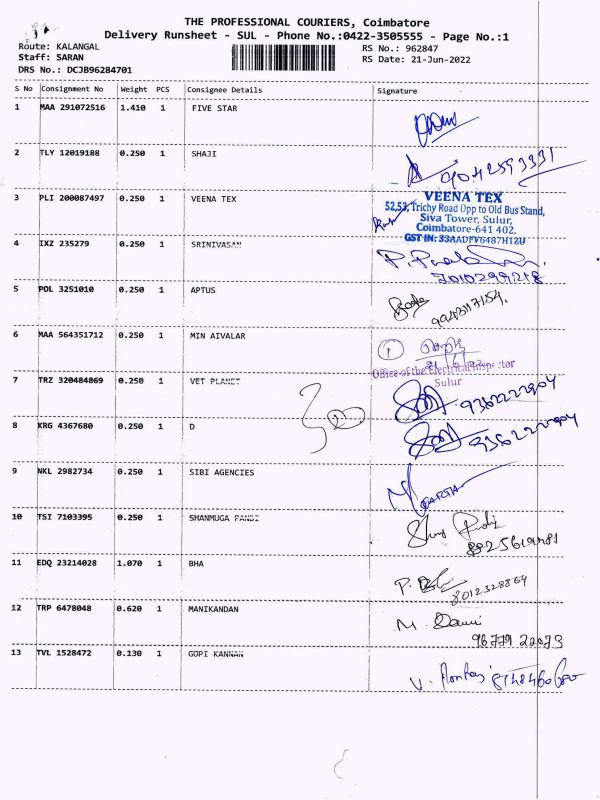 THE PROFESSIONAL COURIERS, Coimbatore
Delivery Runsheet - SUL - Phone No.:0422-3505555 - Page No.:1
Route: KALANGAL RS No.: 962847
Staff: SARAN RS Date: 21-Jun-2022
DRS No.: DCJB96284701
S No Consignment No Weight PCS Consignee Details Signature
1 MAA 291072516 1.410 1 FIVE STAR
2 TLY 12019188 0.250 1 SHAJI 9042593331
3 PLI 200087497 0.250 1 VEENA TEX
VEENA TEX
52,53, Trichy Road Opp to Old Bus Stand,
Siva Tower, Sulur,
Coimbatore-641 402.
GST IN: 33AADFV6487H1ZU
4 IXZ 235279 0.250 1 SRINIVASAN
7010299218
5 POL 3251010 0.250 1 APTUS
9943117154.
6 MAA 564351712 0.250 1 MIN AIVALAR 1
Office of the Electrical Inspector
Sulur
7 TRZ 320484869 0.250 1 VET PLANET 9362222904
8 KRG 4367680 0.250 1 D 9362222904
9 NKL 2982734 0.250 1 SIBI AGENCIES
10 TSI 7103395 0.250 1 SHANMUGA PANDI
8825619481
11 EDQ 23214028 1.070 1 BHA
8012328869
12 TRP 6478048 0.620 1 MANIKANDAN M.
96779 22073
13 TVL 1528472 0.130 1 GOPI KANNAN V.